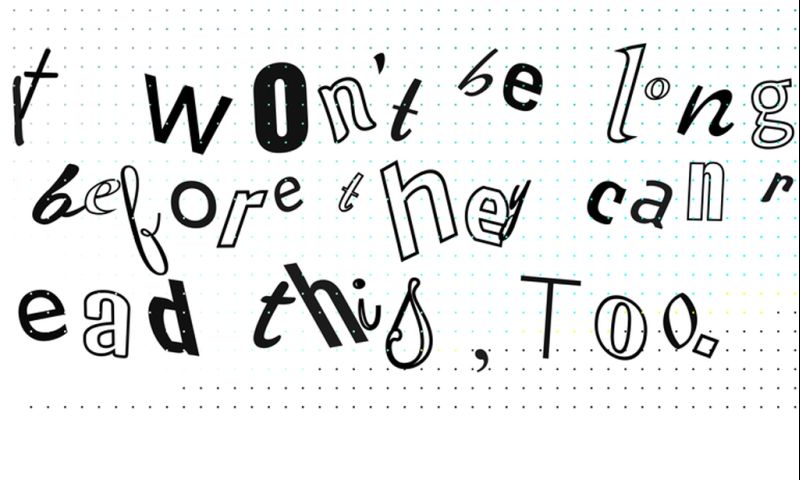 It won't be long
before they can r
ead this, Too.